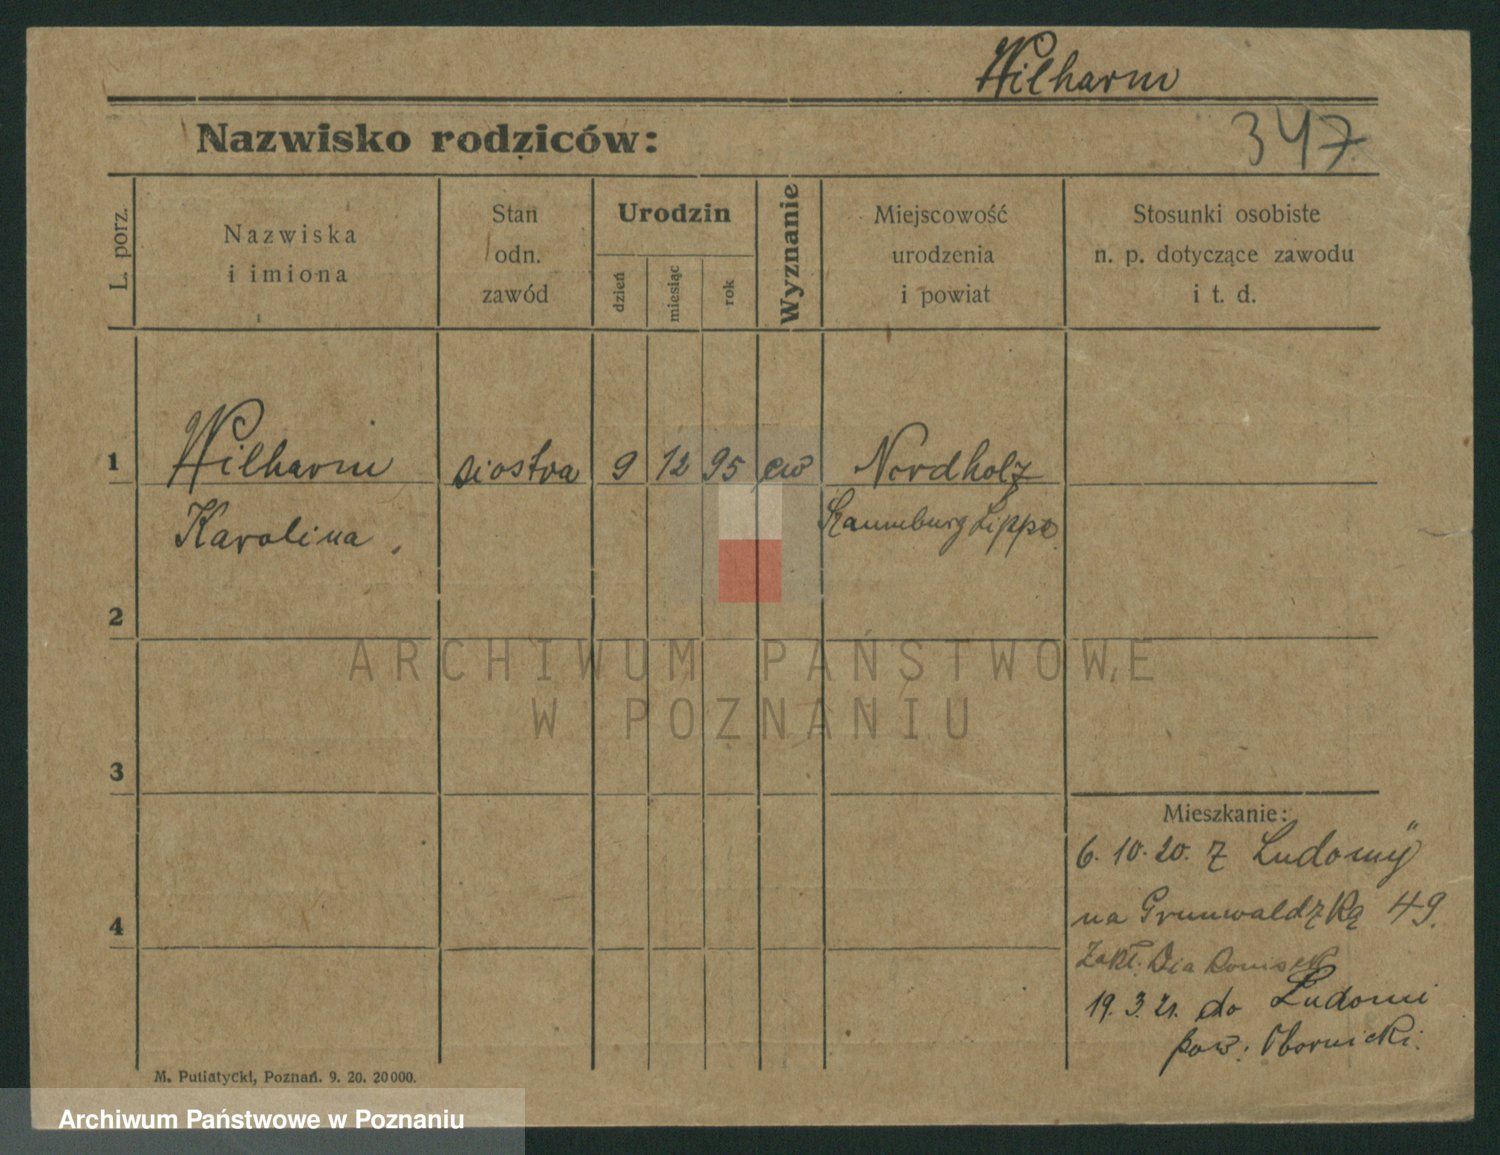 Wilharm
Nazwisko rodziców:
347
L. porz.
Nazwiska
i imiona
Stan
odn.
zawód
Urodzin
dzień
miesiąc
rok
Wyznanie
Miejscowość
urodzenia
i powiat
Stosunki osobiste
n. p. dotyczące zawodu
i t. d.
1 Wilharm siostra 9 12 95 ew Nordholz
Karolina, Schaumburg Lippe
2
ARCHIWUM PAŃSTWOWE
W POZNANIU
3
Mieszkanie:
6. 10. 20. z Ludomÿ
na Grunwaldzką 49.
4
Zakł. Diakonisek
19. 3. 21. do Ludomi
pow: Obornicki.
M. Putiatycki, Poznań. 9. 20. 20000.
Archiwum Państwowe w Poznaniu